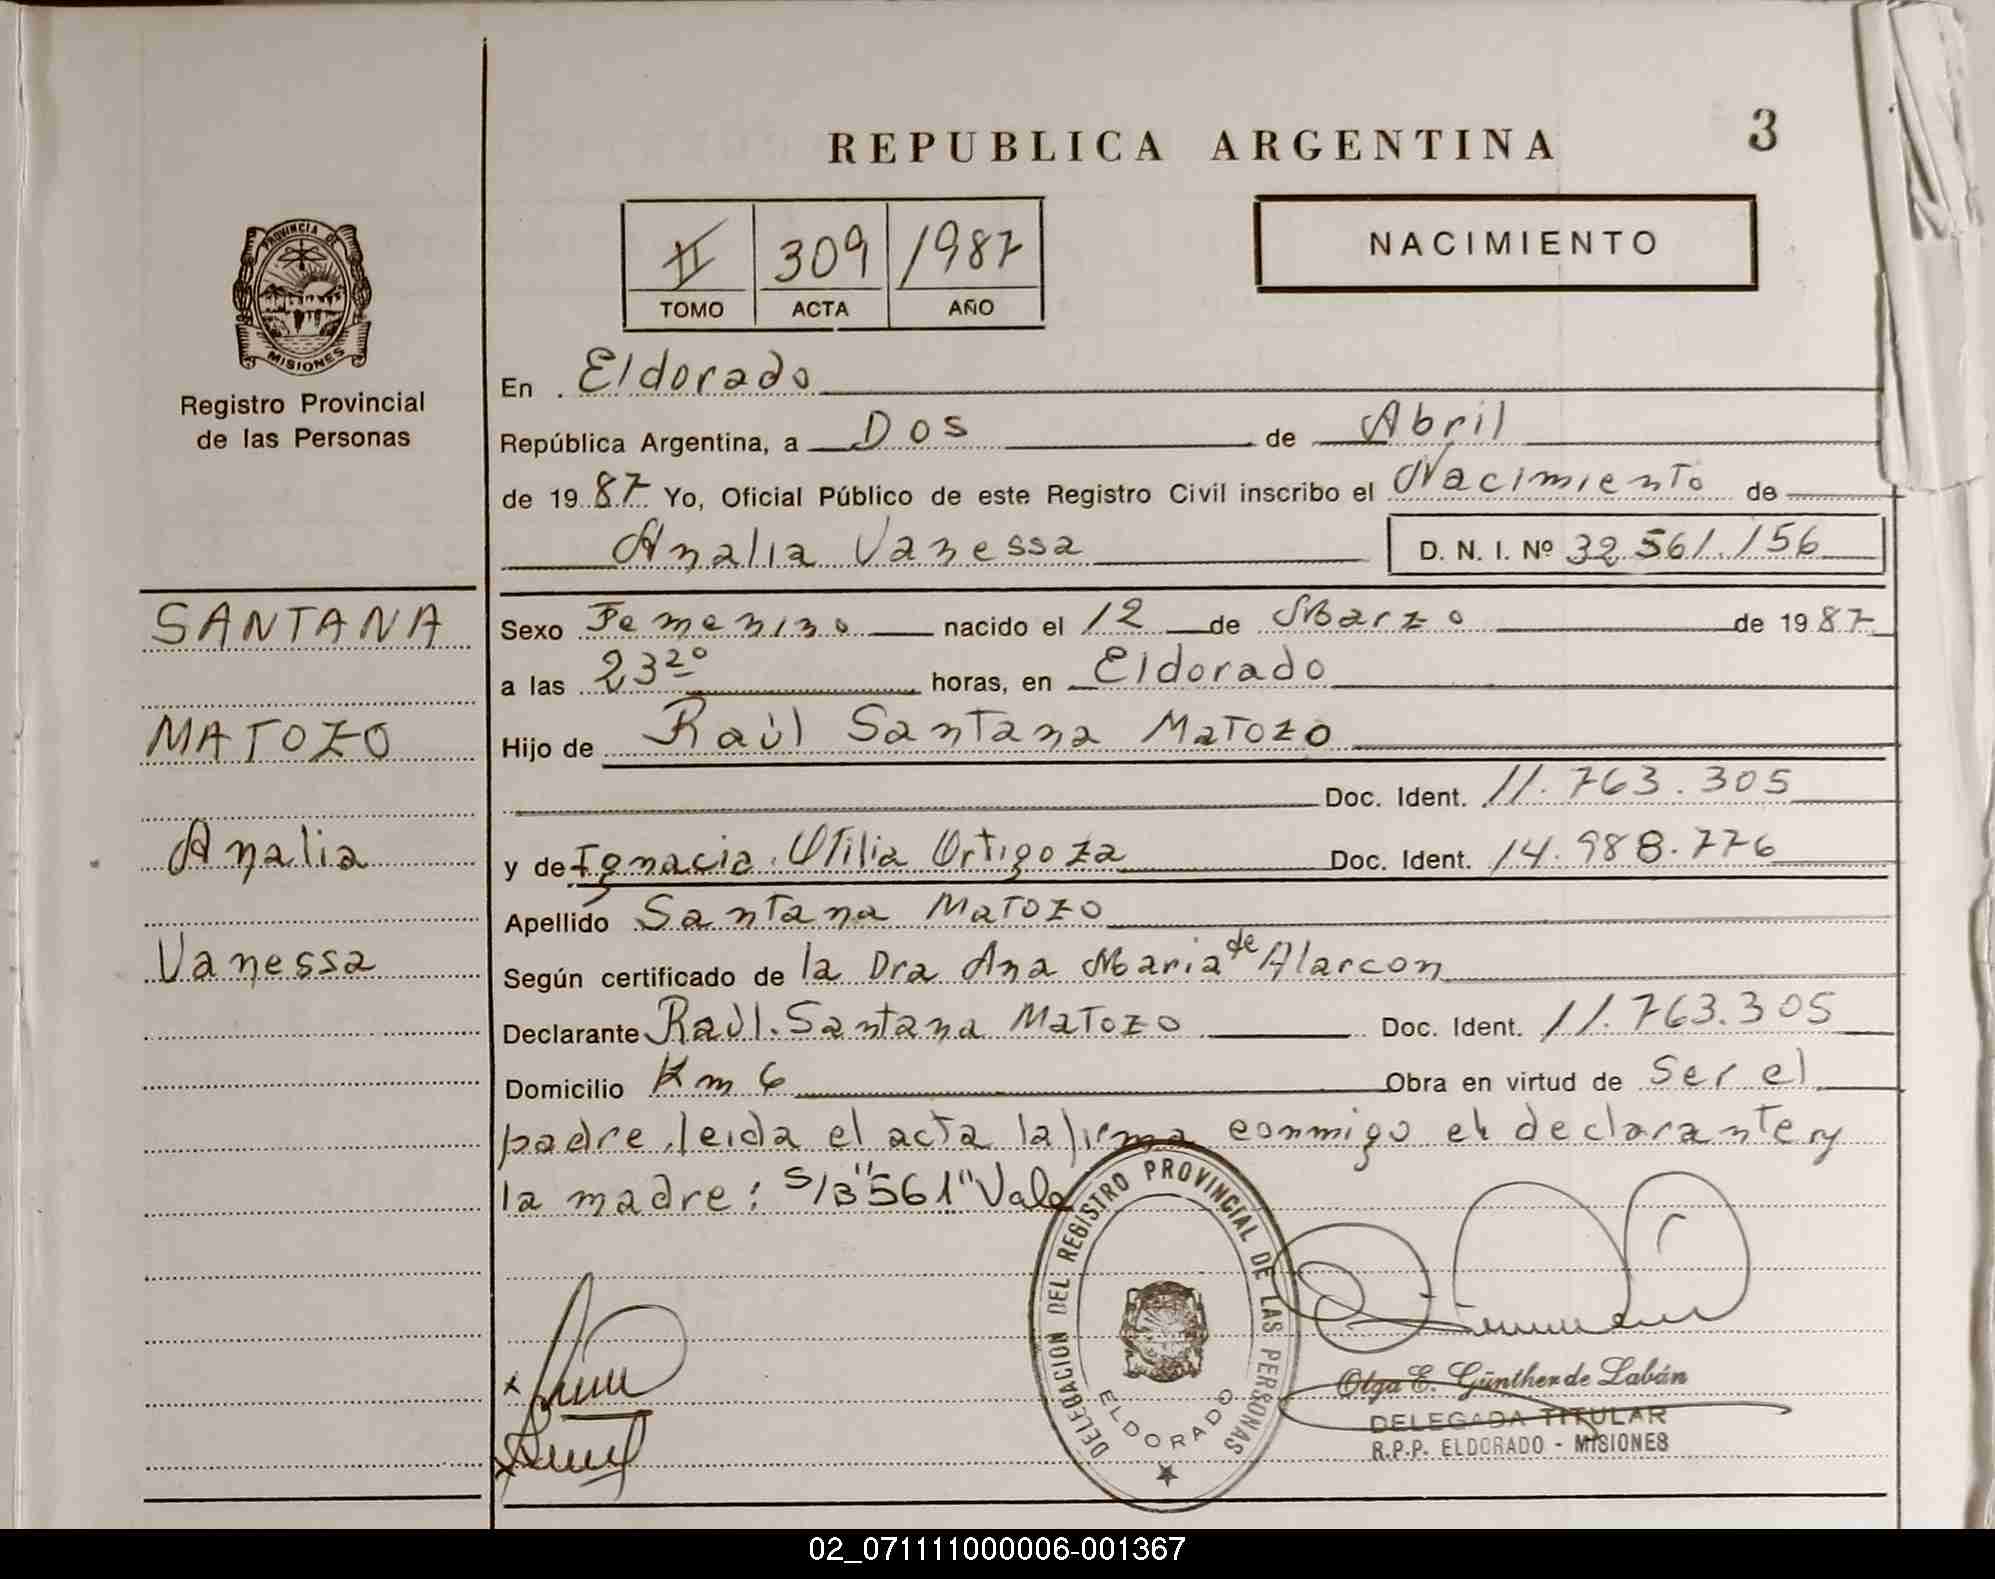 REPUBLICA ARGENTINA
3
PROVINCIA DE
MISIONES
Registro Provincial
de las Personas
II 309 1987
TOMO ACTA AÑO
NACIMIENTO
En Eldorado
República Argentina, a Dos de Abril
de 1987 Yo, Oficial Público de este Registro Civil inscribo el Nacimiento de
Analia Vanessa D. N. I. Nº 32.561.156
SANTANA
MATOZO
Analia
Vanessa
Sexo Femenino nacido el 12 de Marzo de 1987
a las 23 20 horas, en Eldorado
Hijo de Raúl Santana Matozo
Doc. Ident. 11.763.305
y de Ignacia Otilia Ortigoza Doc. Ident. 14.988.776
Apellido Santana Matozo
Según certificado de la Dra Ana Maria de Alarcon
Declarante Raúl Santana Matozo Doc. Ident. 11.763.305
Domicilio Km 6 Obra en virtud de Ser el
padre, leida el acta la firma conmigo el declarante y
la madre: S/B "561" Vale
DELEGACION DEL REGISTRO PROVINCIAL DE LAS PERSONAS
ELDORADO
Olga E. Günther de Labán
DELEGADA TITULAR
R.P.P. ELDORADO - MISIONES
02_071111000006-001367